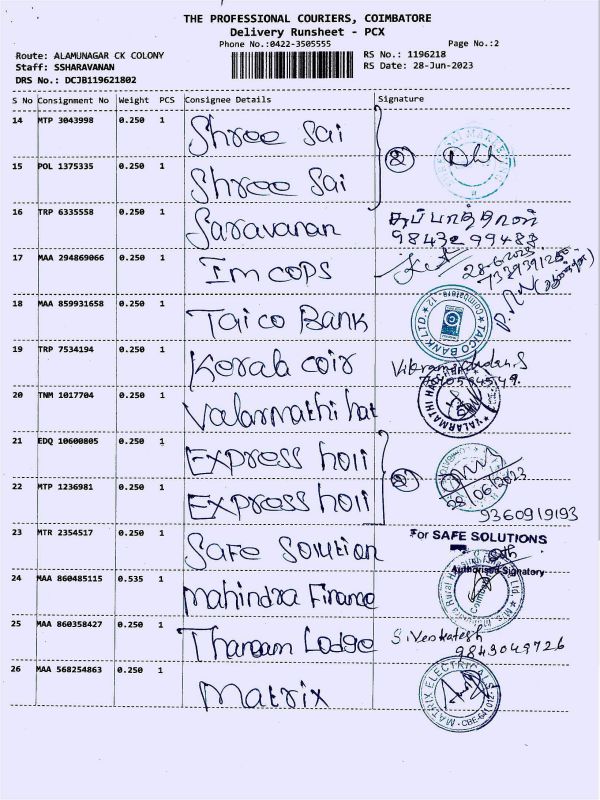 THE PROFESSIONAL COURIERS, COIMBATORE
Delivery Runsheet - PCX
Phone No.:0422-3505555 Page No.:2
Route: ALAMUNAGAR CK COLONY RS No.: 1196218
Staff: SSHARAVANAN RS Date: 28-Jun-2023
DRS No.: DCJB119621802
S No Consignment No Weight PCS Consignee Details Signature
14 MTP 3043998 0.250 1 Shree Sai 2
15 POL 1375335 0.250 1 Shree Sai
16 TRP 6335558 0.250 1 Saravanan
98432 99488
17 MAA 294869066 0.250 1 Imcops 28-6-2023
18 MAA 859931658 0.250 1 Taico Bank TAICO BANK LTD. Coimbatore - 12.
19 TRP 7534194 0.250 1 Kerala coir
20 TNM 1017704 0.250 1 Valarmathi hat VALARMATHI
21 EDQ 10600805 0.250 1 Express holi 2
28/06/2023
22 MTP 1236981 0.250 1 Express holi 9360919193
23 MTR 2354517 0.250 1 Safe Solution For SAFE SOLUTIONS
Authorised Signatory
24 MAA 860485115 0.535 1 Mahindra Finance
25 MAA 860358427 0.250 1 Thangam Lodge S.Venkatesh
9843049726
26 MAA 568254863 0.250 1 Matrix MATRIX ELECTRICALS CBE-641 012